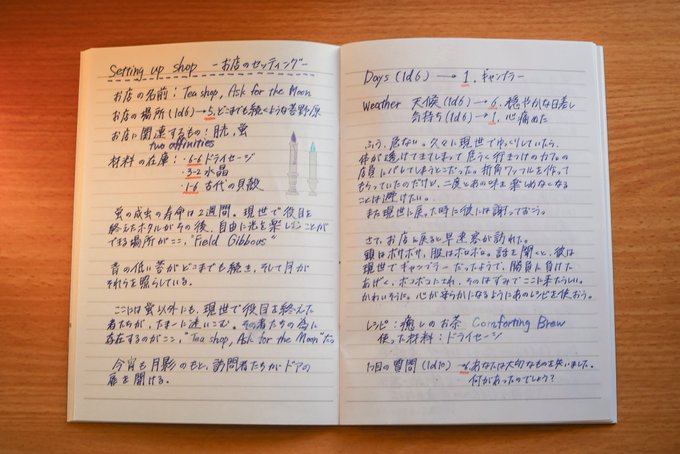 Setting up shop -お店のセッティング-
お店の名前：Tea shop, Ask for the Moon
お店の場所(1d6)→5. どこまでも続くような苔野原
お店に関連するもの：月光, 蛍
two affinities
材料の在庫：・6-6 ドライセージ
・3-2 水晶
・1-6 古代の貝殻
蛍の成虫の寿命は2週間。現世で役目を
終えたホタルがその後、自由に光を楽しむことが
できる場所がここ、"Field Gibbous"
青の低い苔がどこまでも続き、そして月が
それらを照らしている。
ここには蛍以外も、現世で役目を終えた
者たちが、たまーに迷いこむ。その者たちの為に
存在するのがここ、"Tea shop, Ask for the Moon"だ。
今宵も月影のもと、訪問者たちがドアの
扉を開ける。
Days (1d6) → 1. ギャンブラー
Weather 天候(1d6)→6. 穏やかな日差し
気持ち(1d6)→1. 心痛めた
ふぅ、危ない。久々に現世でゆっくりしていたら、
体が透けてきてしまって危うく行きつけのカフェの
店員にバレてしまうとこだった。折角ワッフルを作って
もらっていたのだけど、二度とあの味を楽しめなくなる
ことは避けたい。
また現世に戻った時に彼には謝っておこう。
さて、お店に戻ると早速客が訪れた。
頭はボサボサ、服はボロボロ。話を聞くと、彼は
現世でギャンブラーだったようで、勝負に負けた
あげく、ボコボコにされ、そのはずみでここに来たらしい。
かわいそうに。心が安らかになるようにあのレシピを使おう。
レシピ：癒しのお茶 Comforting Brew
使った材料：ドライセージ
1つ目の質問(1d10)→ あなたは大切なものを失いました。
何があったのでしょう？